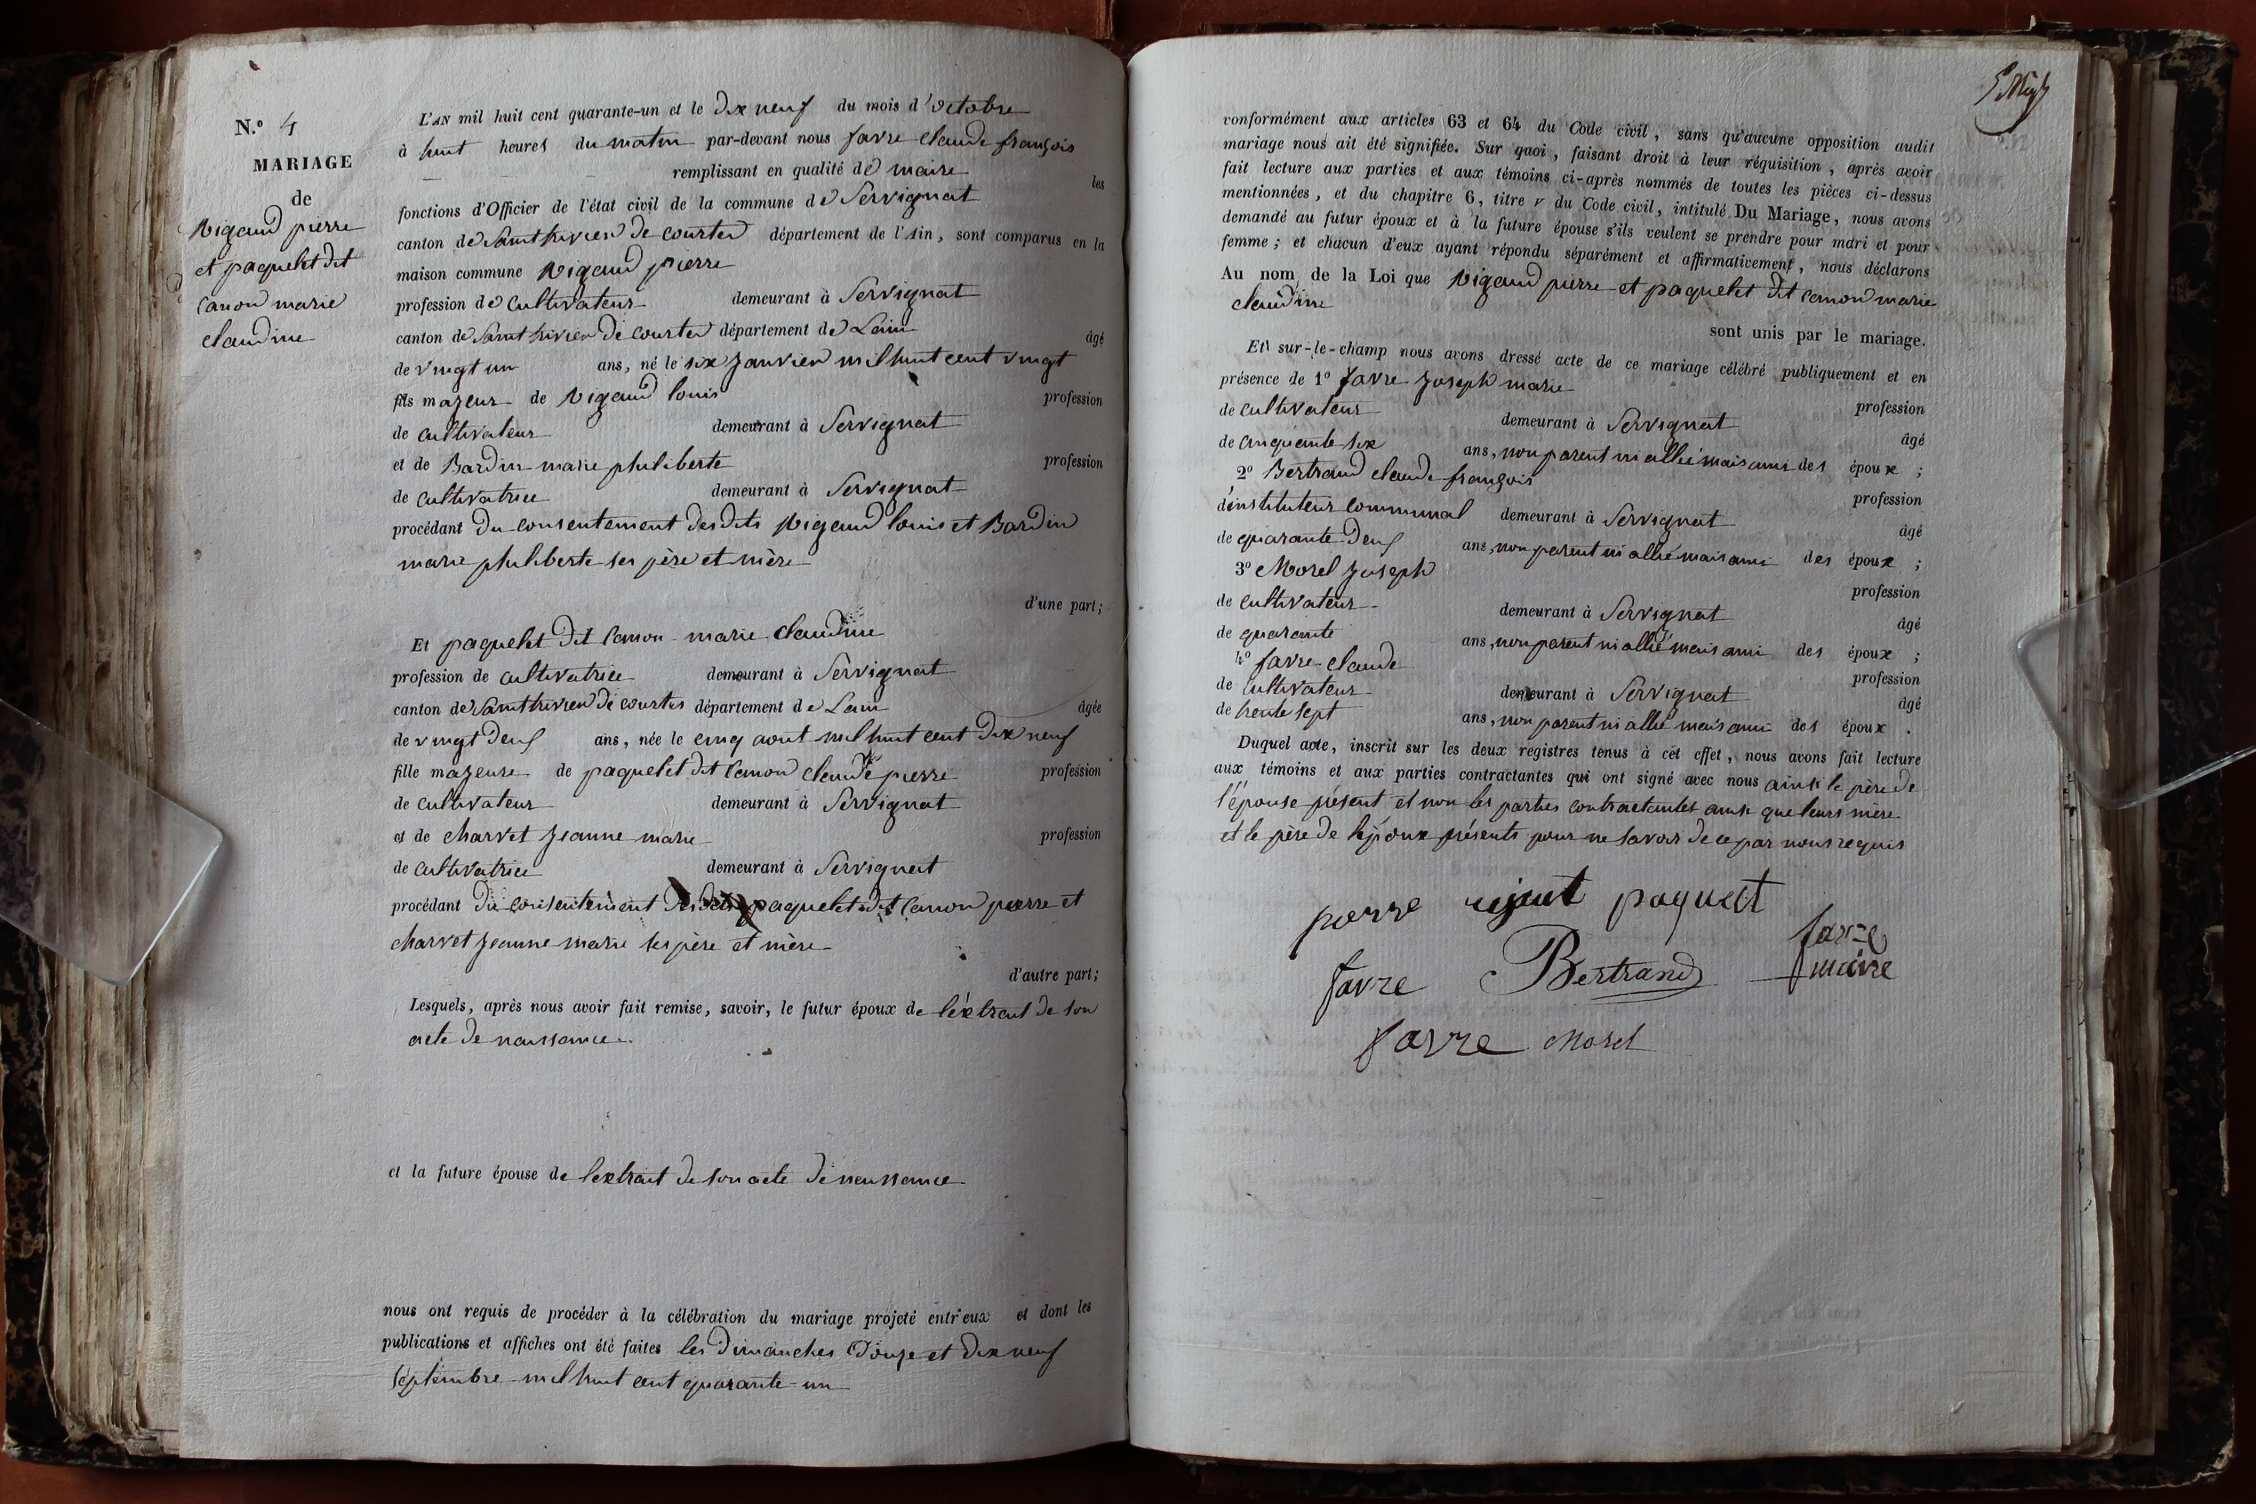 N.º 4
MARIAGE
de
Nigaud pierre
et paquelet dit
canon marie
claudine
L'AN mil huit cent quarante-un et le dix neuf du mois d'octobre
à huit heures du matin par-devant nous favre claude françois
remplissant en qualité de maire les
fonctions d'Officier de l'état civil de la commune de Servignat
canton de Saint trivier de courtes département de l'Ain, sont comparus en la
maison commune Nigaud pierre
profession de cultivateur demeurant à Servignat
canton de Saint trivier de courtes département de Lain âgé
de vingt un ans, né le six janvier mil huit cent vingt
fils majeur de Nigaud louis profession
de cultivateur demeurant à Servignat
et de Bardin marie philiberte profession
de cultivatrice demeurant à Servignat
procédant du consentement desdits Nigaud louis et Bardin
marie philiberte ses père et mère
d'une part;
Et paquelet dit canon marie claudine
profession de cultivatrice demeurant à Servignat
canton de Saint trivier de courtes département de Lain âgée
de vingt deux ans, née le cinq aout mil huit cent dix neuf
fille majeure de paquelet dit canon claude pierre profession
de cultivateur demeurant à Servignat
et de charvet jeanne marie profession
de cultivatrice demeurant à Servignat
procédant du consentement desdits paquelet dit canon pierre et
charvet jeanne marie ses père et mère
d'autre part;
Lesquels, après nous avoir fait remise, savoir, le futur époux de l'éxtrait de son
acte de naissance.
et la future épouse de lextrait de son acte de naissance
nous ont requis de procéder à la célébration du mariage projeté entr'eux et dont les
publications et affiches ont été faites les dimanches douze et dix neuf
septembre mil huit cent quarante un
conformément aux articles 63 et 64 du Code civil, sans qu'aucune opposition audit
mariage nous ait été signifiée. Sur quoi, faisant droit à leur réquisition, après avoir
fait lecture aux parties et aux témoins ci-après nommés de toutes les pièces ci-dessus
mentionnées, et du chapitre 6, titre v du Code civil, intitulé Du Mariage, nous avons
demandé au futur époux et à la future épouse s'ils veulent se prendre pour mari et pour
femme; et chacun d'eux ayant répondu séparément et affirmativement, nous déclarons
Au nom de la Loi que Nigaud pierre et paquelet dit canon marie
claudine
sont unis par le mariage.
Et sur-le-champ nous avons dressé acte de ce mariage célébré publiquement et en
présence de 1º favre joseph marie
de cultivateur demeurant à Servignat profession
de cinquante six ans, non parent ni allié mais ami des époux ; âgé
2º Bertrand claude françois
d'instituteur communal demeurant à Servignat profession
de quarante deux ans, non parent ni allié mais ami des époux ; âgé
3º Morel joseph
de cultivateur demeurant à Servignat profession
de quarante ans, non parent ni allié mais ami des époux ; âgé
4º favre claude
de cultivateur demeurant à Servignat profession
de trente sept ans, non parent ni allié mais ami des époux . âgé
Duquel acte, inscrit sur les deux registres tenus à cet effet, nous avons fait lecture
aux témoins et aux parties contractantes qui ont signé avec nous ainsi le père de
l'épouse présent et non les parties contractantes ainsi que leurs mère
et le père de l'époux présents pour ne savoir de ce par nous requis
pierre paquelet
favre Bertrand favre
maire
favre Morel